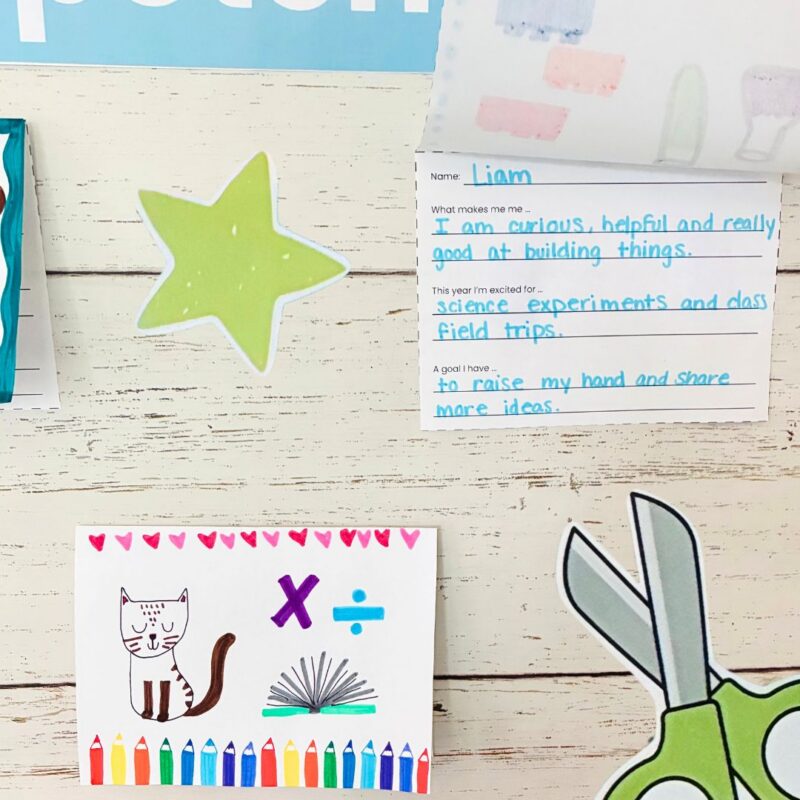 Name: Liam
What makes me me ...
I am curious, helpful and really
good at building things.
This year I'm excited for ...
science experiments and class
field trips.
A goal I have ...
to raise my hand and share
more ideas.
X ÷